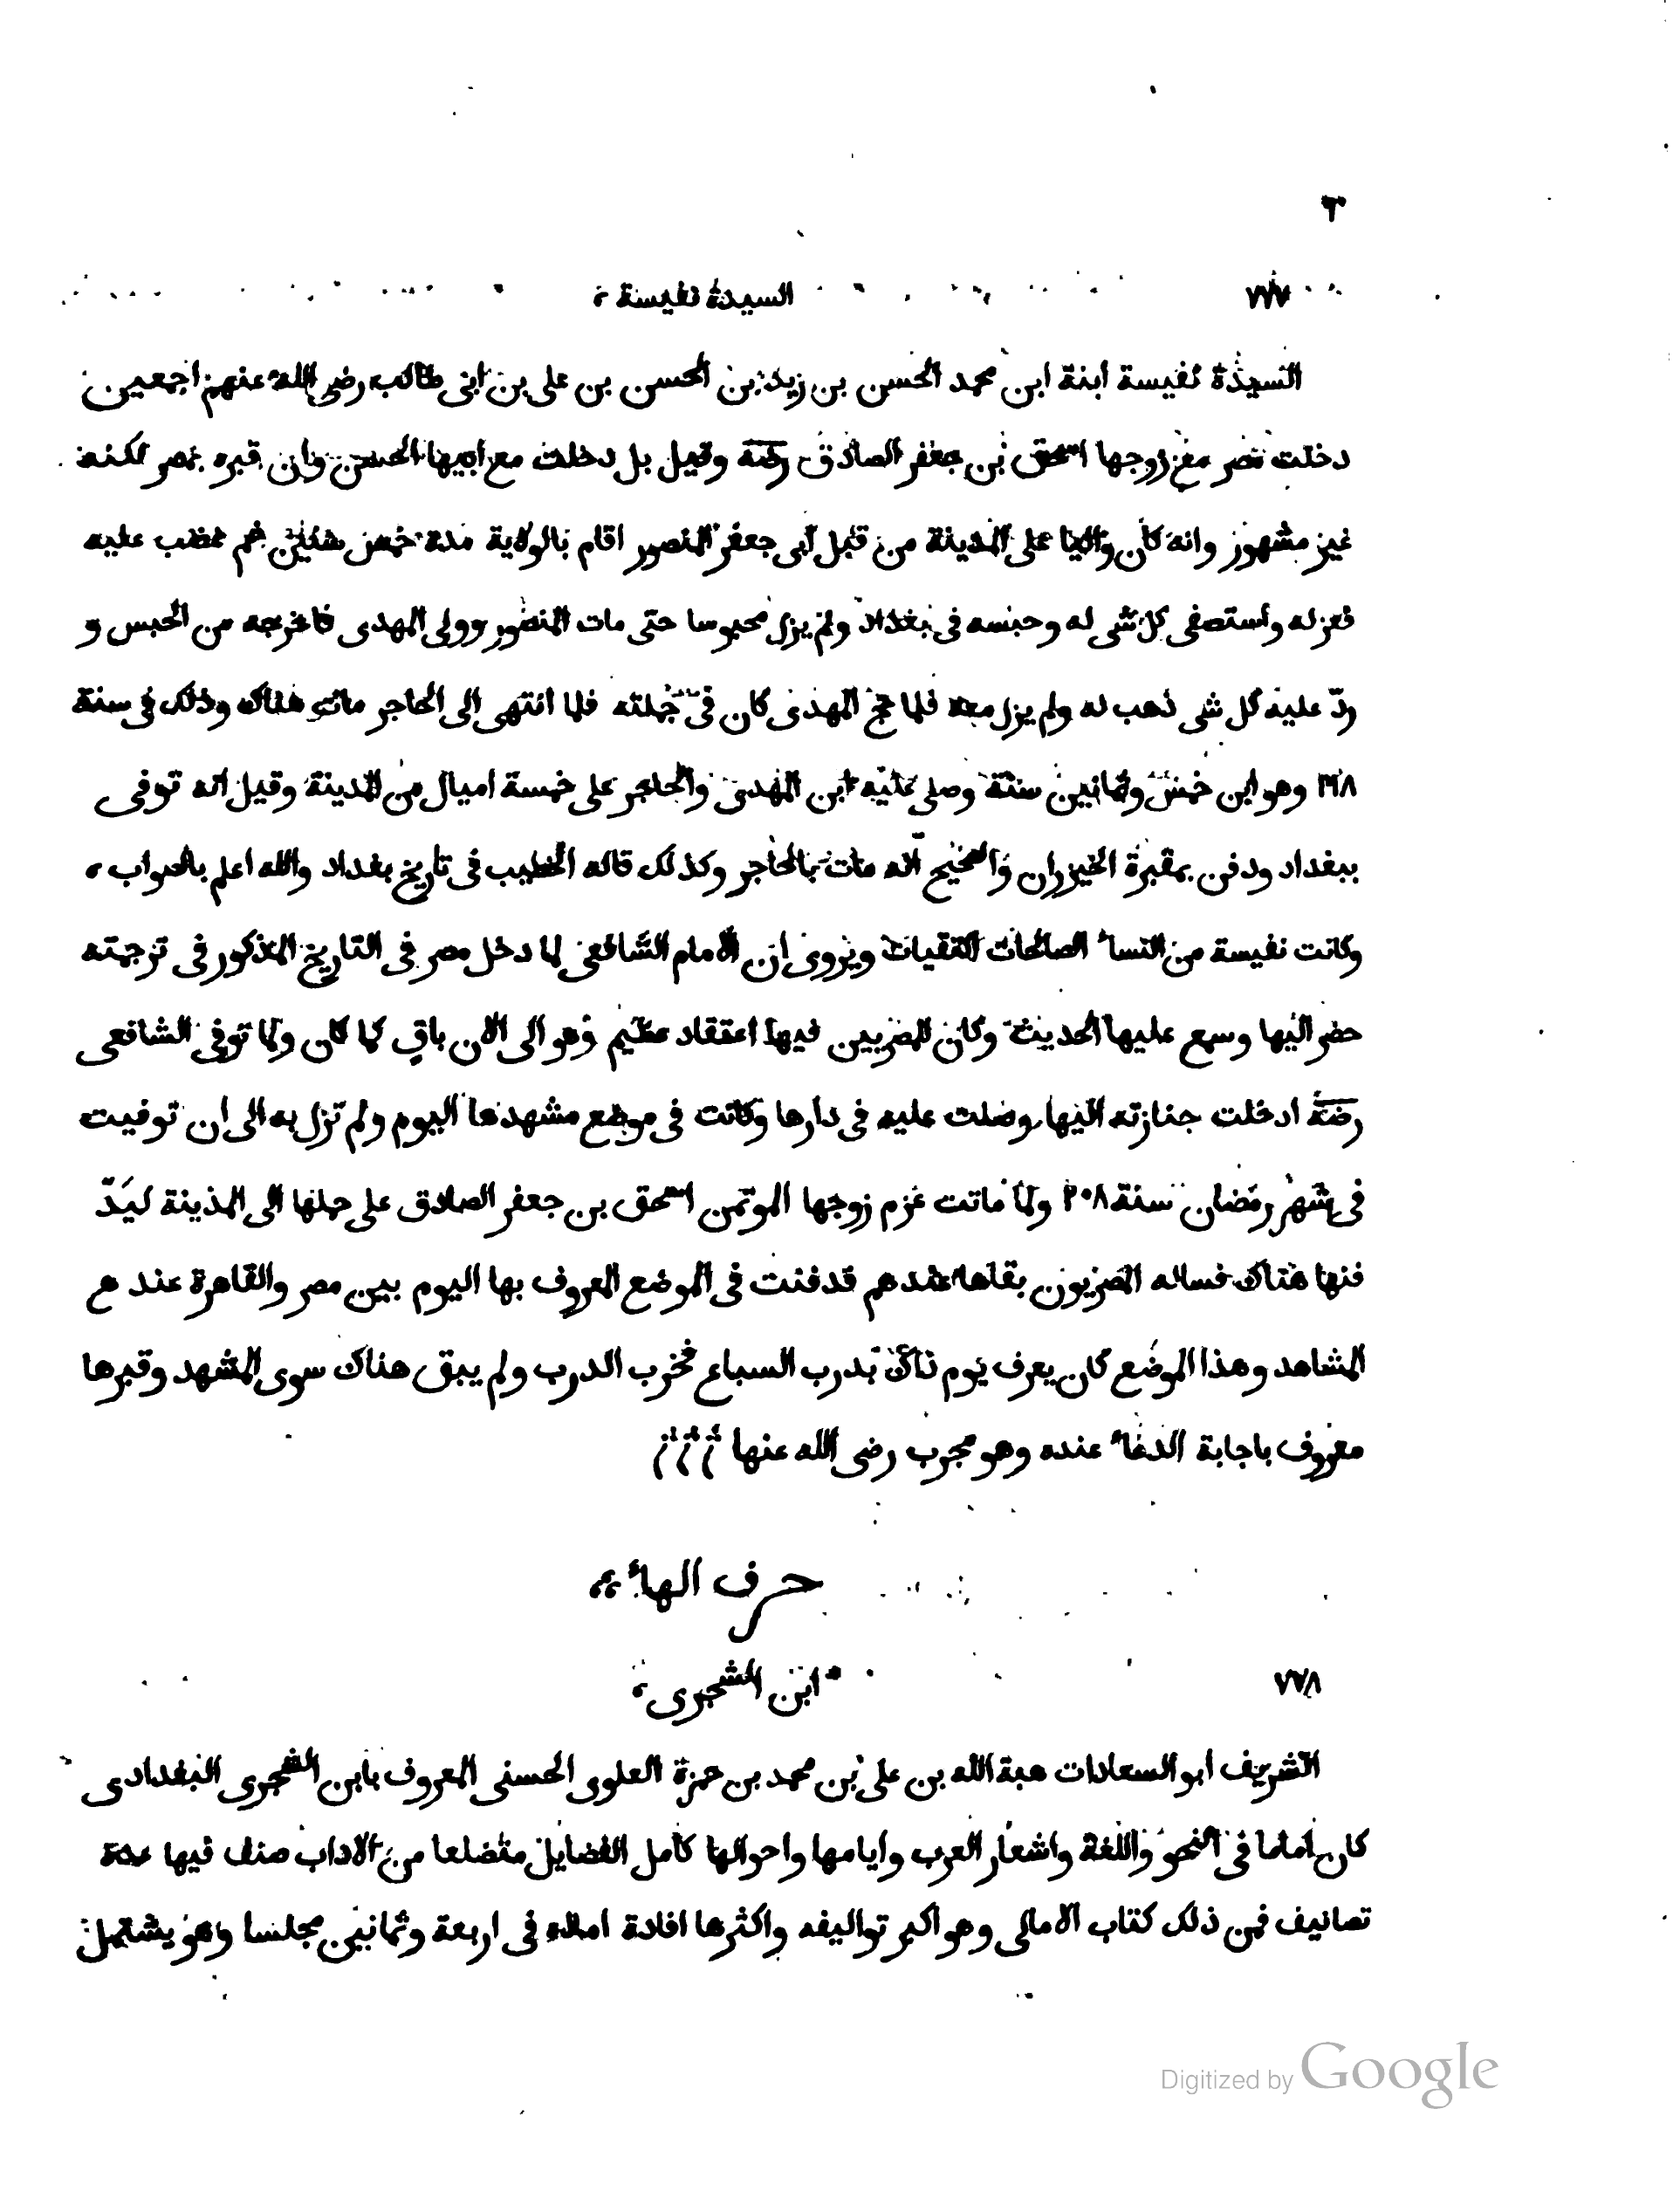 ٦
٧٧٧
السيدة نفيسة ،
السيدة نفيسة ابنة ابن محمد الحسن بن زيد بن الحسن بن على بن ابى طالب رضى الله عنهم اجمعين
دخلت مصر مع زوجها اسحق بن جعفر الصادق رضه وقيل بل دخلت مع ابيها الحسن وان قبره بمصر لكنه
غير مشهور وانه كان واليا على المدينة من قبل ابى جعفر المنصور اقام بالولاية مدة خمس سنين ثم غضب عليه
فعزله واستصفى كل شى له وحبسه فى بغداد ولم يزل محبوسا حتى مات المنصور وولى المهدى فاخرجه من الحبس و
ردّ عليه كل شى ذهب له ولم يزل معه فلما حج المهدى كان فى جملته فلما انتهى الى الحاجر مات هناك وذلك فى سنة
١٦٨ وهو ابن خمس وثمانين سنة وصلى عليه ابن المهدى والحاجر على خمسة اميال من المدينة وقيل انه توفى
ببغداد ودفن بمقبرة الخيزران والصحيح انّه مات بالحاجر وكذلك قاله الخطيب فى تاريخ بغداد والله اعلم بالصواب ،
وكانت نفيسة من النساء الصالحات التقيات ويروى ان الامام الشافعى لما دخل مصر فى التاريخ المذكور فى ترجمته
حضر اليها وسمع عليها الحديث وكان للمصريين فيها اعتقاد عظيم وهو الى الان باقٍ كما كان ولما توفى الشافعى
رضه ادخلت جنازته اليها وصلت عليه فى دارها وكانت فى موضع مشهدها اليوم ولم تزل به الى ان توفيت
فى شهر رمضان سنة ٢٠٨ ولما ماتت عزم زوجها الموتمن اسحق بن جعفر الصادق على حملها الى المدينة ليَدّ
فنها هناك فساله المصريون بقاها عندهم فدفنت فى الموضع المعروف بها اليوم بين مصر والقاهرة عند هم
المشاهد وهذا الموضع كان يعرف يوم ذاك بدرب السباع فخرب الدرب ولم يبق هناك سوى المشهد وقبرها
معروف باجابة الدعاء عنده وهو مجرب رضى الله عنها
حرف الهاء ،،
٧٧٨
ابن الشجرى ،
الشريف ابو السعادات هبة الله بن على بن محمد بن حمزة العلوى الحسنى المعروف بابن الشجرى البغدادى
كان اماما فى النحو واللغة واشعار العرب وايامها واحوالها كامل الفضايل متضلعا من الاداب صنف فيها عدة
تصانيف فمن ذلك كتاب الامالى وهو اكبر تواليفه واكثرها افادة املاه فى اربعة وثمانين مجلسا وهو يشتمل
Digitized by Google